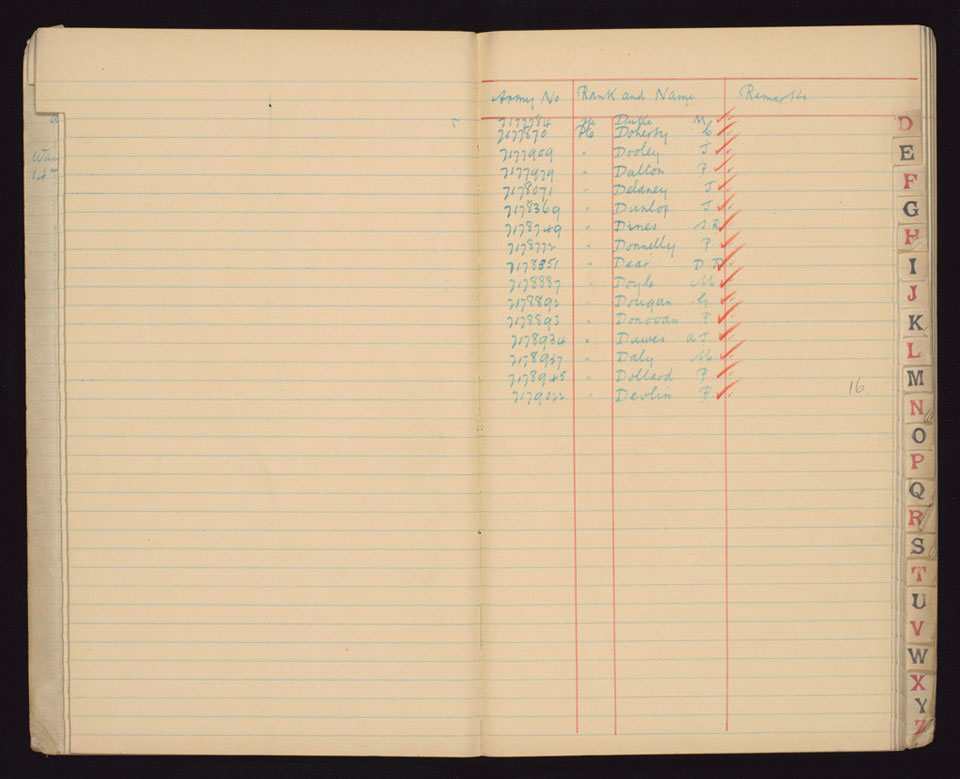 Army No Rank and Name Remarks.
7177784 M.
7177870 Pte Doherty C.
7177909 " Dooley J.
7177979 " Dalton P.
7178071 " Delaney J.
7178369 " Dunlop J.
7178749 " Dines S.R.
7178772 " Donnelly P.
7178851 " Dear D.R.
7178887 " Doyle M.
7178892 " Dougan G.
7178893 " Donovan P.
7178934 " Dawes A.J.
7178937 " Daly M.
7178945 " Dollard P.
7179022 " Devlin P. 16.
D
E
F
G
H
I
J
K
L
M
N
O
P
Q
R
S
T
U
V
W
X
Y
Z